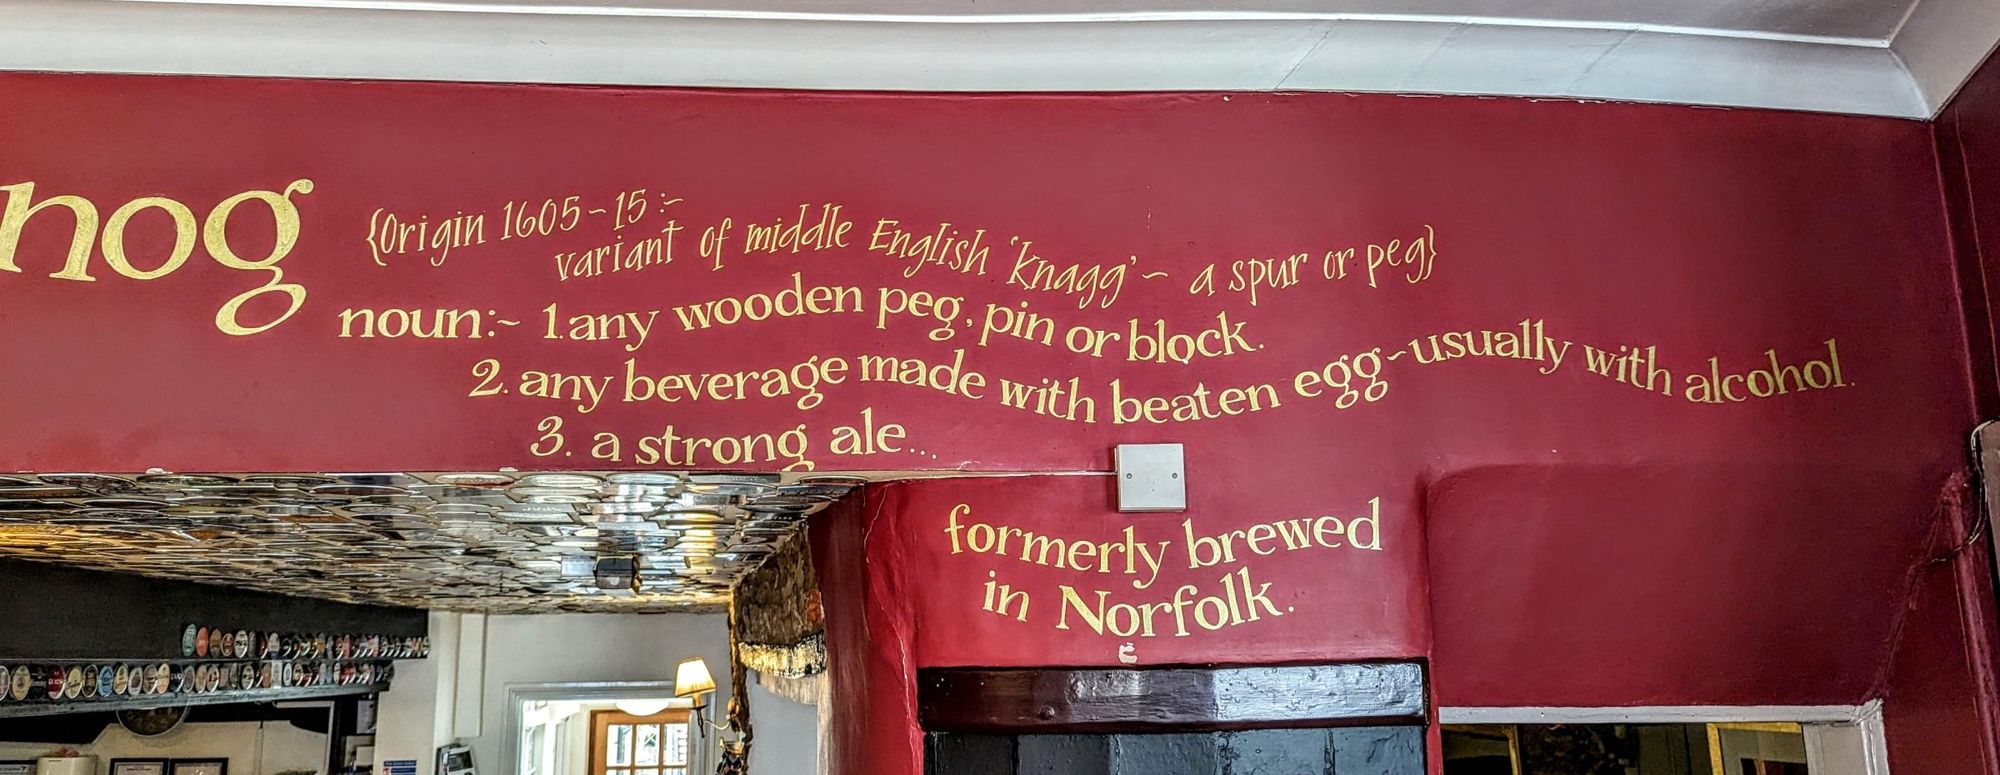 nog
{Origin 1605~15:~
variant of middle English 'knagg' ~ a spur or peg}
noun:~ 1. any wooden peg, pin or block.
2. any beverage made with beaten egg ~ usually with alcohol.
3. a strong ale...
formerly brewed
in Norfolk.